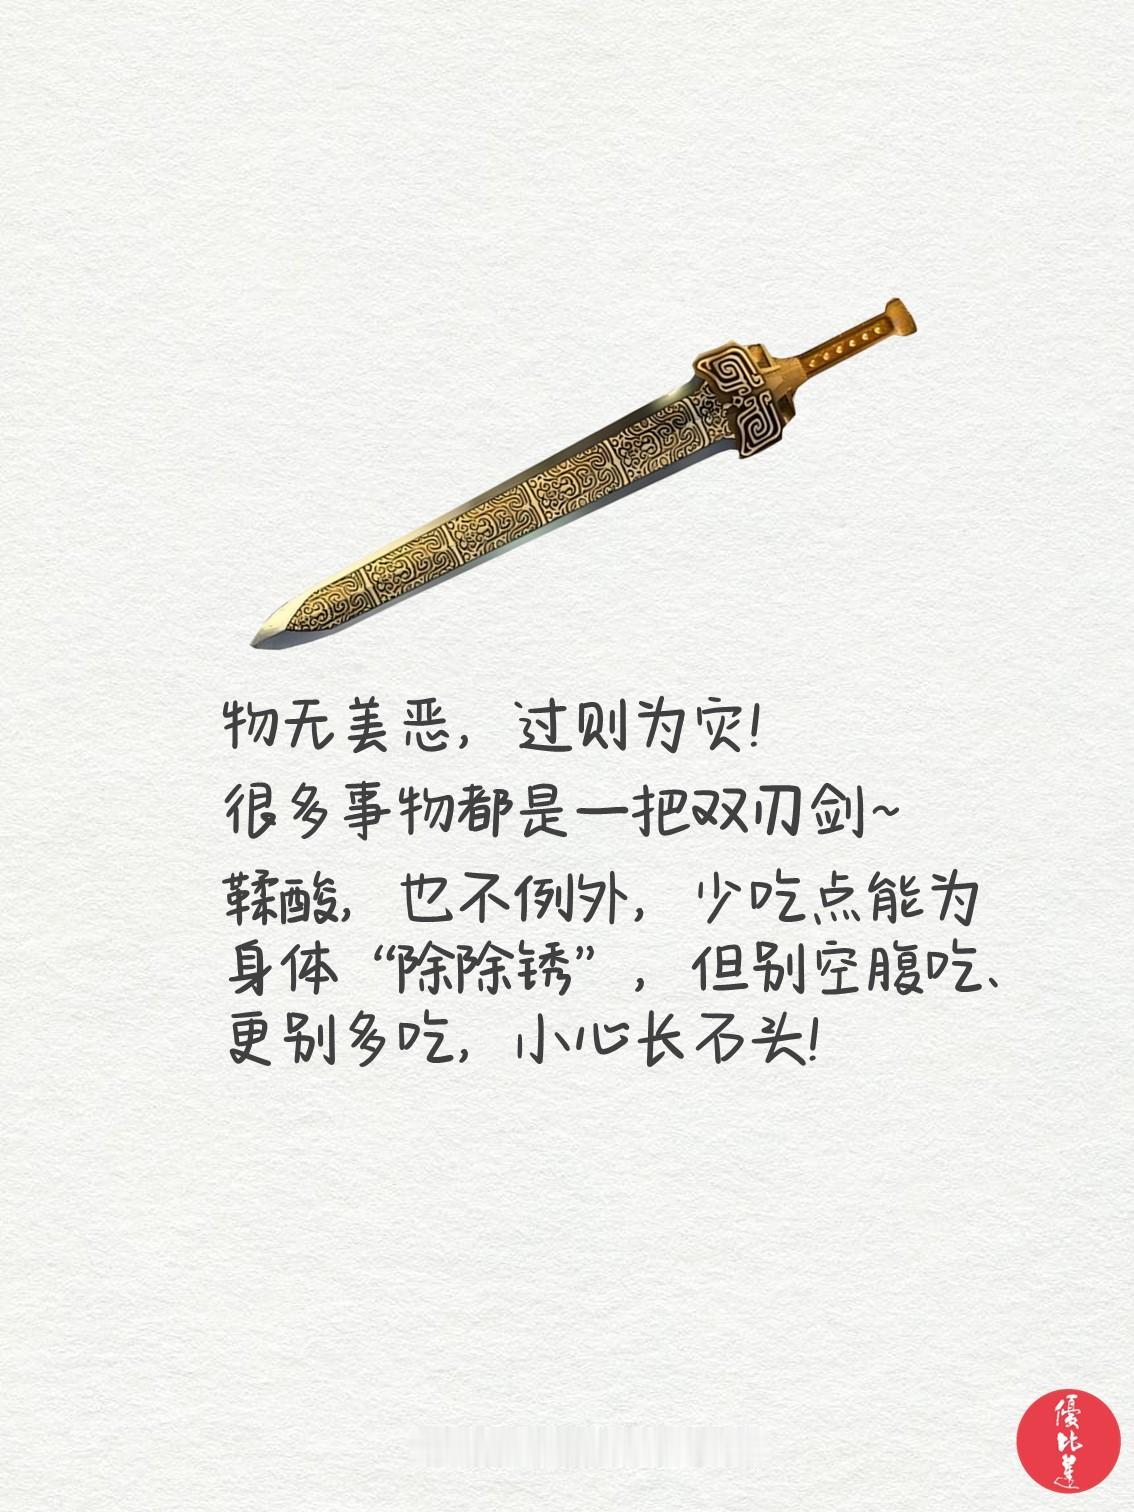 物无美恶，过则为灾！
很多事物都是一把双刃剑~
鞣酸，也不例外，少吃点能为
身体“除除锈”，但别空腹吃、
更别多吃，小心长石头！
優比達